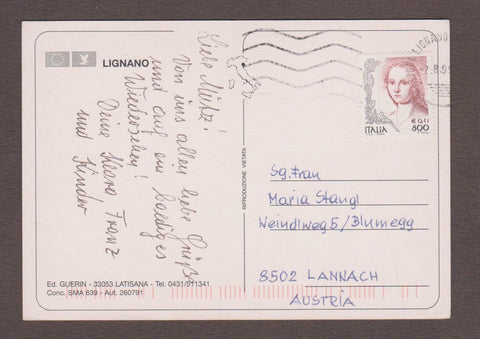 LIGNANO
Liebe
Von uns allen liebe Grüße
und auf ein baldiges
Wiedersehen!
Deine Franz
und Kinder
LIGNANO
€ 0,41
ITALIA 800
RIPRODUZIONE VIETATA
Sg. Frau
Maria Stangl
Weindlweg 5/Blumegg
8502 LANNACH
AUSTRIA
Ed. GUERIN - 33053 LATISANA - Tel. 0431/511341
Conc. SMA 639 - Aut. 260791